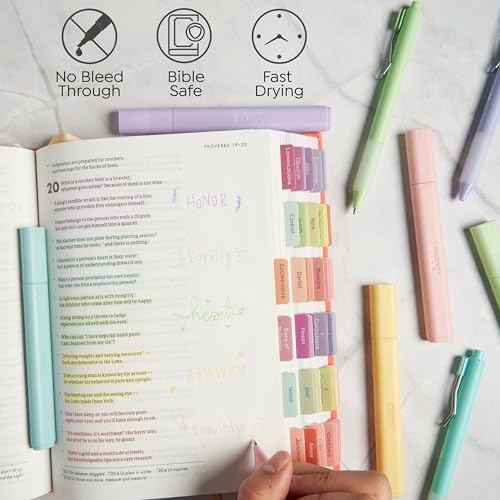 No Bleed
Through
Bible
Safe
Fast
Drying
PROVERBS 19–20
Judgments are prepared for mockers,
and beatings for the backs of fools.
20 Wine is a mocker, beer is a brawler;
whoever goes astray because of them is not wise.
A king's terrible wrath is like the roaring of a lion;
anyone who provokes him endangers himself.
Honor belongs to the person who ends a dispute,
but any fool can get himself into a quarrel.
The slacker does not plow during planting season;
at harvest time he looks, and there is nothing.
Counsel in a person's heart is deep water;
but a person of understanding draws it out.
Many a person proclaims his own loyalty,
but who can find a trustworthy person?
A righteous person acts with integrity;
his children who come after him will be happy.
A king sitting on a throne to judge
separates out all evil with his eyes.
Who can say, "I have kept my heart pure;
I am cleansed from my sin"?
Differing weights and varying measures —
both are detestable to the LORD.
Even a young man is known by his actions —
by whether his behavior is pure and upright.
The hearing ear and the seeing eye —
the LORD made them both.
Don't love sleep, or you will become poor;
open your eyes, and you'll have enough to eat.
"It's worthless, it's worthless!" the buyer says,
but after he is on his way, he gloats.
There is gold and a multitude of jewels,
but knowledgeable lips are a rare treasure.
HONOR
loyalty
heart
BEHAVIOR
knowledge
Lamentations
Obadiah
John
Ezekiel
Jonah
Acts
Ecclesiastes
Daniel
Romans
Song of
Hosea
1 Corinthians
Isaiah
Joel
2
Jeremiah
Amos
Galatians